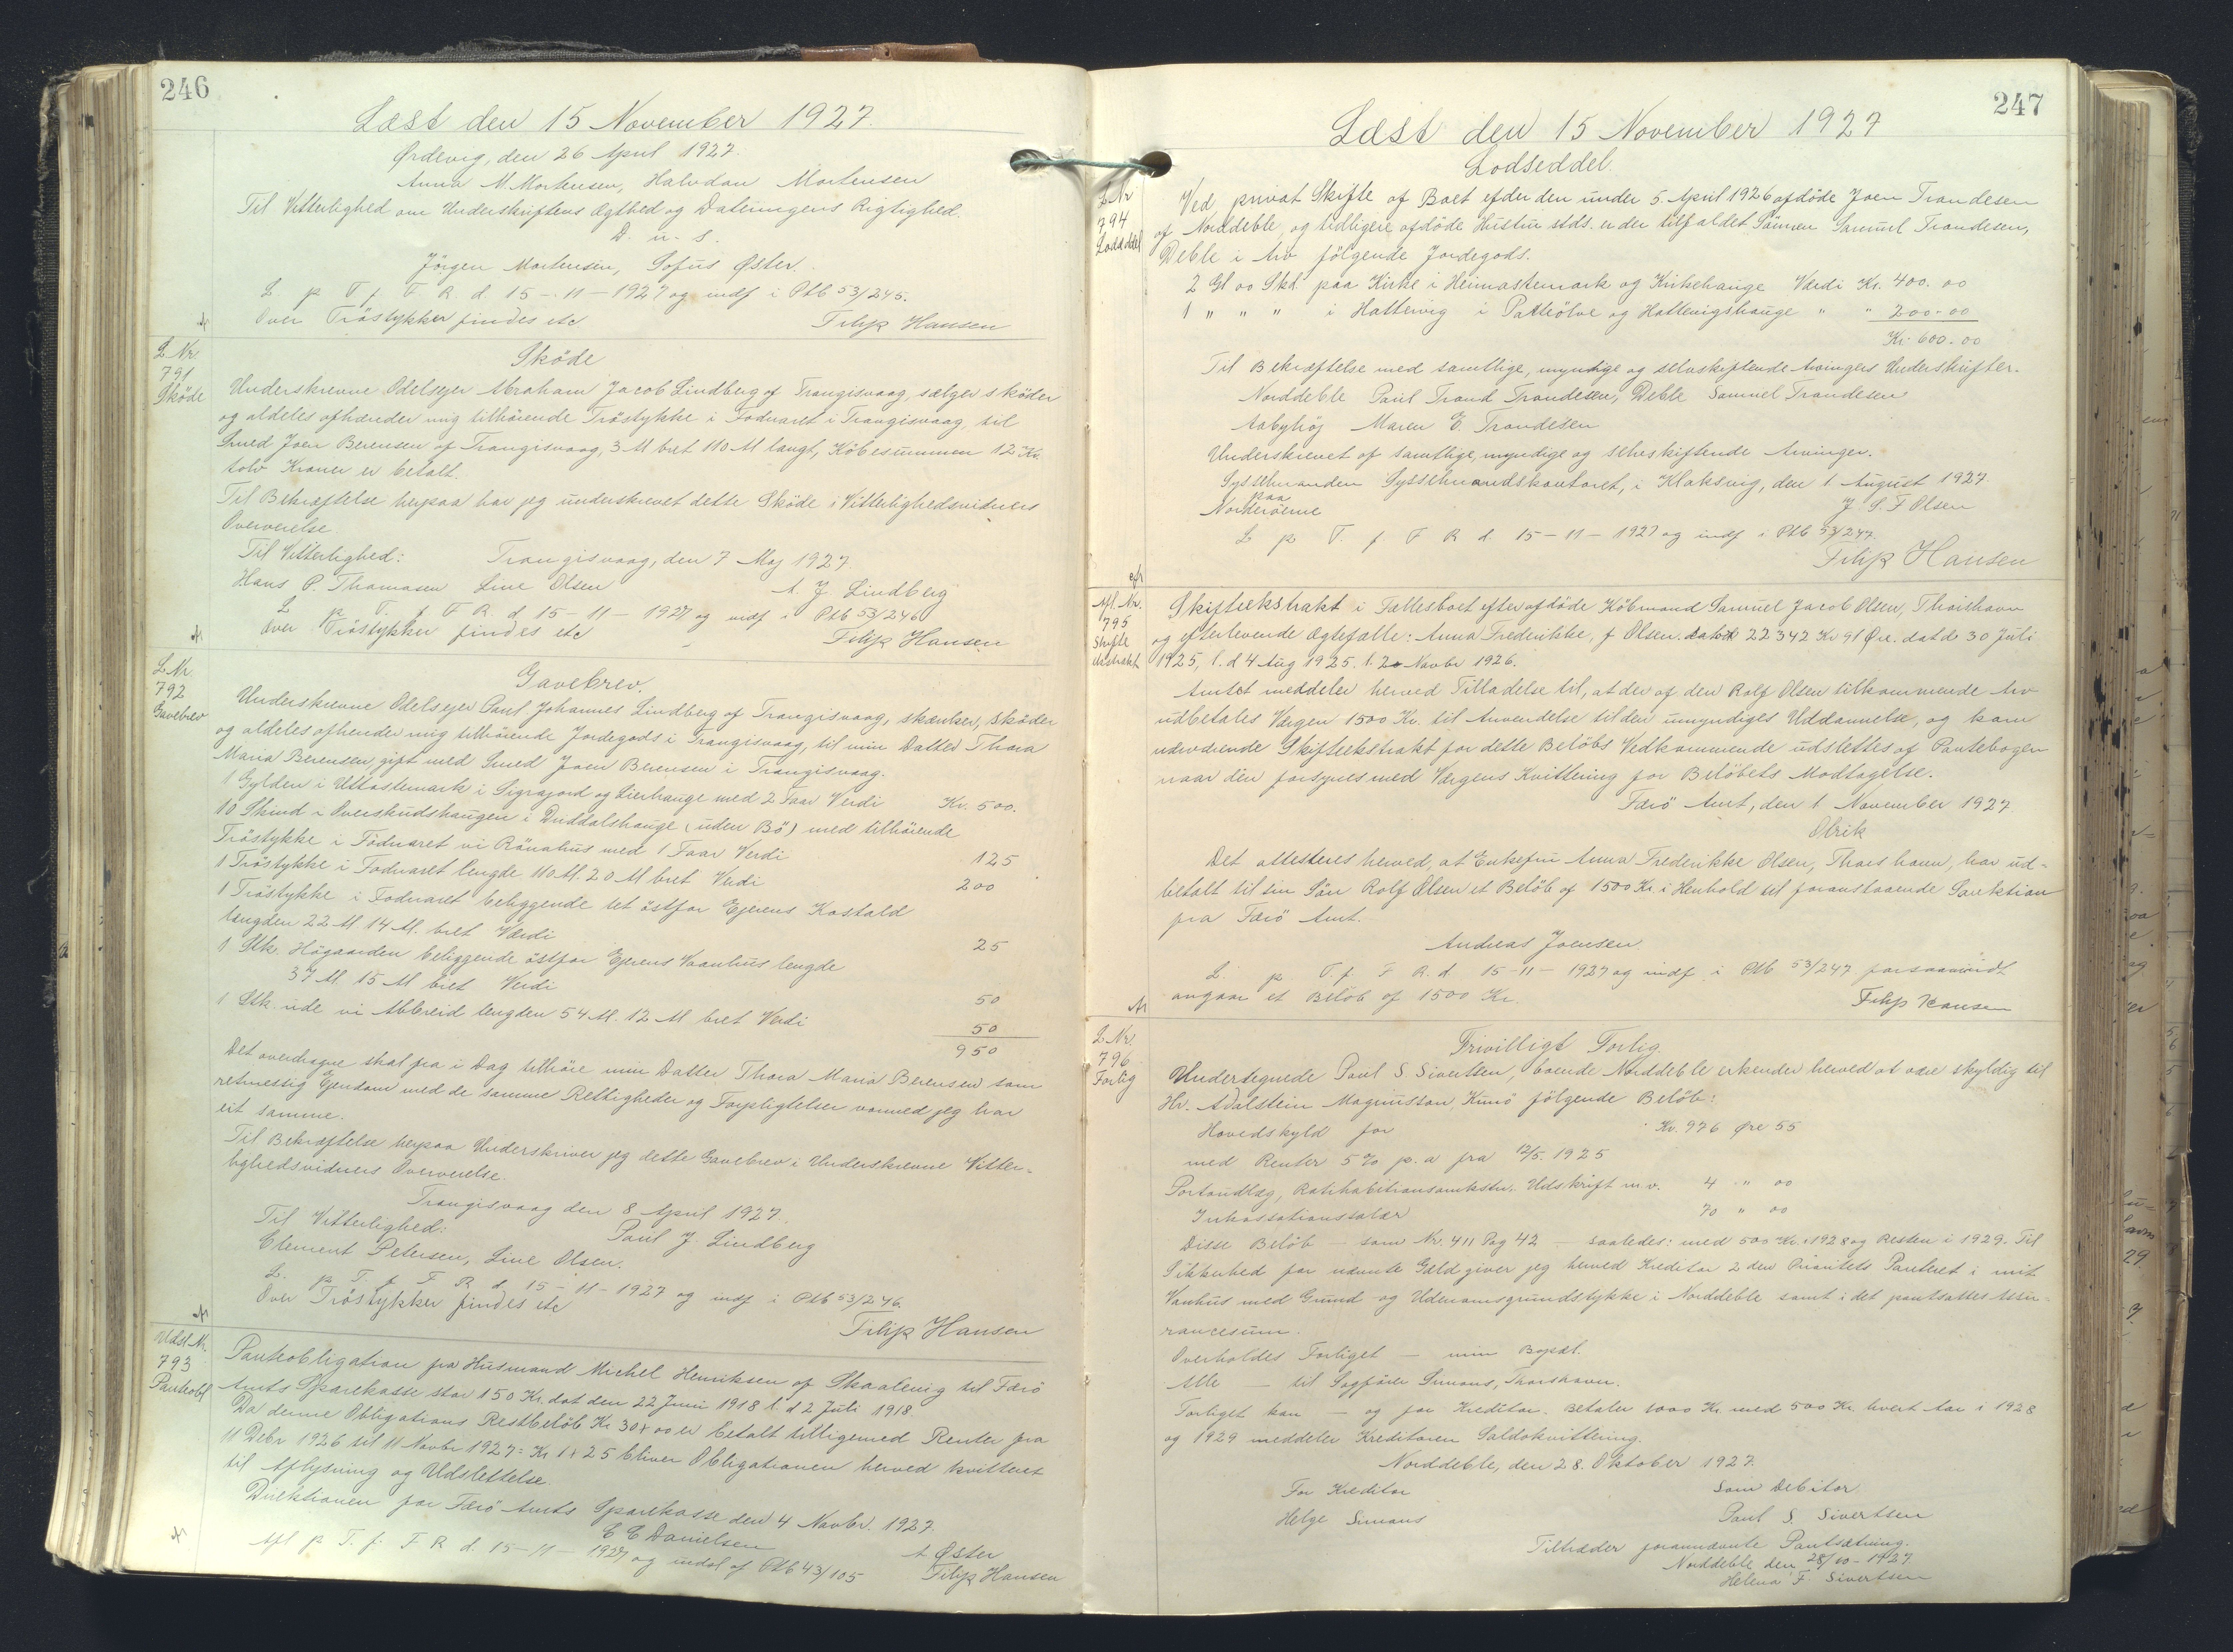 246
Læst den 15 November 1927.
Ørdevig, den 26 April 1927.
Anna M. Mortensen, Halvdan Mortensen
Til Vitterlighed om Underskriftens Ægthed og Dateringens Rigtighed.
D. u. s.
Jörgen Mortensen, Sofus Øster.
L p T f F R. d. 15-11-1927 og indf i Ptb 53/245.
Over Tröstykker findes etc
Filip Hansen
L Nr.
791
Sköde
Sköde
Underskrevne Odelsejer Abraham Jacob Lindberg of Trangisvaag, sælger sköder
og aldeles afhænder mig tilhörende Tröstykke i Fodvaret i Trangisvaag, til
Smed Joen Berensen of Trangisvaag, 3 M bret 110 M langt, Köbesummen 12 Kr.
tolv Kroner er betalt.
Til Bekræftelse herpaa har jeg underskrevet dette Sköde i Vitterlighedsvidners
Oververelse.
Til Vitterlighed: Trangisvaag, den 7 Maj 1927.
Hans P. Thomasen Line Olsen A. J. Lindberg
L p T. f F R. d 15-11-1927 og indf i Ptb 53/246
Over Tröstykker findes etc
Filip Hansen
L Nr.
792
Gavebrev
Gavebrev.
Underskrevne Odelsejer Paul Johannes Lindberg of Trangisvaag, skænker, sköder
og aldeles afhender mig tilhörende Jordegods i Trangisvaag, til min Datter Thora
Maria Berensen, gift med Smed Joen Berensen i Trangisvaag.
1 Gylden i Uttastemark i Sigrajord og Lierhauge med 2 Faar Verdi Kr. 500.
10 Skind i Overskudshaugen i Duddalshauge (uden Bö) med tilhörende
Tröstykke i Födvaret vi Rönahus med 1 Faar Verdi 125
1 Tröstykke i Fodvaret lengde 110 M. 20 M bret Verdi 200
1 Tröstykke i Fodvaret beliggende tet östfor Ejerens Kostald
lengden 22 M. 14 M. bret Værdi 25
1 Stk. Högaarden beliggende östfor Ejerens Vaanhus lengde
37 M. 15 M bret Verdi 50
1 Stk. ude vi Abbreid lengden 54 M. 12 M bret Verdi 50
950
Det overdragne skal fra i Dag tilhöre min Datter Thora Maria Berensen som
retmessig Ejendom med de samme Rettigheder og Forpligtelser vormed jeg har
eit samme.
Til Bekræftelse herpaa Underskriver jeg dette Gavebrev i Underskrevne Vitter-
lighedsvidners Oververelse.
Trangisvaag den 8 April 1927.
Til Vitterlighed: Paul J. Lindberg
Clement Petersen, Line Olsen.
L. p T. f F R d 15-11-1927 og indf i Ptb 53/246.
Over Tröstykker findes etc
Filip Hansen
Udsl. Nr.
793
Panteobl
Panteobligation fra Husmand Michel Henriksen of Skaalevig til Færö
Amts Sparekasse stor 150 Kr. dat den 22 Juni 1918 l. d 2 Juli 1918.
Da denne Obligations Restbelöb Kr 30+00 er betalt tilligemed Renter fra
11 Debr 1926 til 11 Novbr 1927: Kr 1+25 bliver Obligationen herved kvitteret
til Aflysning og Udslettelse.
Direktionen for Færö Amts Sparekasse den 4 Novbr. 1927.
E E Danielsen A Øster
Afl p T. f. F R d. 15-11-1927 og udsl af Ptb 43/105 Filip Hansen
247
Læst den 15 November 1927
Lodseddel.
L Nr
794
Lodseddel
Ved privat Skifte of Boet efter den under 5. April 1926 afdöde Joen Trondesen
of Norddeble, og tidligere afdöde Hustru stds. er der tilfaldet Sönnen Samuel Trondesen,
Deble i Arv fölgende Jordegods.
2 Gl 00 Skd. paa Kirke i Heimastemark og Kirkehauge Værdi Kr. 400.00
1 " " " i Hattervig i Patteölve og Hattevigshauge " " 200-00
Kr. 600.00
Til Bekræftelse med samtlige, myndige og selvskiftende Arvingers Underskrifter.
Norddeble Paul Trond Trondesen, Deble Samuel Trondesen
Aabyhöj Maren E. Trondesen
Underskrevet of samtlige, myndige og selvskiftende Arvinger.
Sysselmanden Sysselmandskontoret, i Klaksvig, den 1 August 1927.
paa
Norderöerne J. S. F Olsen
L p T. f. F R d. 15-11-1927 og indf i Ptb 53/247.
Filip Hansen
Afl. Nr.
795
Skifte
ekstrakt
Skifteekstrakt i Fællesboet efter afdöde Köbmand Samuel Jacob Olsen, Thorshavn
og efterlevende Ægtefælle: Anna Frederikke, f Olsen. 22342 Kr 91 Øre. dat d. 30 Juli
1925, l. d 4 Aug 1925. l. 2 Novbr 1926.
Amtet meddeler herved Tilladelse til, at der af den Rolf Olsen tilkommende Arv
udbetales Værgen 1500 Kr. til Anvendelse til den umyndiges Uddannelse, og kan
nærværende Skifteekstrakt for dette Belöbs Vedkommende udslettes af Pantebogen
naar den forsynes med Værgens Kvittering for Belöbets Modtagelse.
Færö Amt, den 1 November 1927.
Olrik
Det attesteres herved, at Enkefru Anna Frederikke Olsen, Thorshavn, har ud-
betalt til sin Sön Rolf Olsen et Belöb af 1500 Kr. i Henhold til foranstaaende Sanktion
fra Færö Amt.
Andreas Joensen
L. p T. f. F R. d 15-11-1927 og indf i Ptb 53/247 forsaavidt
angaar et Belöb of 1500 Kr.
Filip Hansen
L Nr.
796
Forlig
Frivilligt Forlig.
Undertegnede Poul S. Sivertsen, boende Norddeble erkender herved at være skyldig til
Hr. Adalstein Magnusson, Kunö fölgende Belöb:
Hovedskyld for Kr. 976 Øre 55
med Renter 5% p. a fra 12/5. 1925
Portoudlæg, Ratihabitionsomkstn. Udskrift m.v. 4 " 00
Inkassationssalær 70 " 00
Disse Belöb — som Nr. 411 Pag 42 — saaledes: med 500 Kr. i 1928 og Resten i 1929. Til
Sikkerhed for nævnte Gæld giver jeg herved Kreditor 2 den Prioritets Panteret i mit
Vaanhus med Grund og Udenomsgrundstykke i Norddeble samt i det pantsattes Assu-
rancesum.
Overholdes Forliget — min Bopæl.
Alle — til Sagförer Simons, Thorshavn.
Forliget kan — og for Kreditor. Betaler 1000 Kr med 500 Kr. hvert Aar i 1928
og 1929 meddeler Kreditoren Saldokvittering.
Norddeble, den 28. Oktober 1927.
For Kreditor Som Debitor
Helge Simons Poul S. Sivertsen
Tiltræder forannævnte Pantsætning.
Norddeble den 28/10-1927
Helena F. Sivertsen